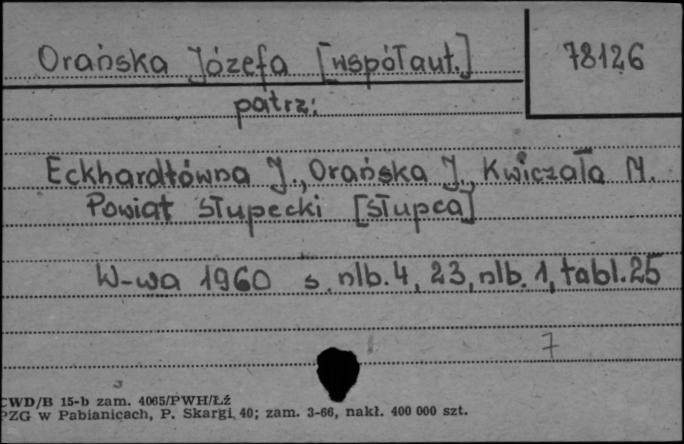 Orańska Józefa [współaut.] 78126
patrz:
Eckhardtówna J., Orańska J., Kwiczała M.
Powiat słupecki [Słupca]
W-wa 1960 s. nlb. 4, 23, nlb. 1, tabl. 25
7
CWD/B 15-b zam. 4065/PWH/Łź
PZG w Pabianicach, P. Skargi 40; zam. 3-66, nakł. 400 000 szt.